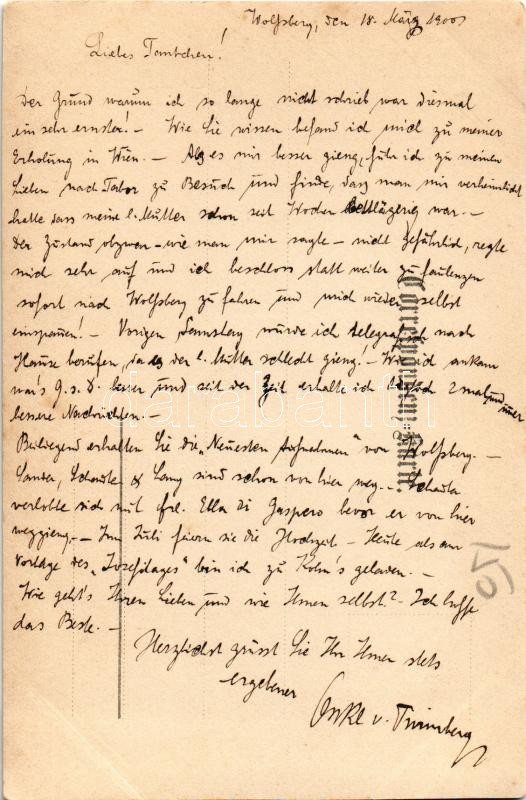 Wolfsberg, den 18. März 1900
Liebes Tantchen!
Der Grund warum ich so lange nicht schrieb war diesmal
ein sehr ernster! – Wie Sie wissen befand ich mich zu meiner
Erholung in Wien. – Als es mir besser gieng, fuhr ich zu meinen
Lieben nach Tabor zu Besuch und finde, dass man mir verheimlicht
hatte dass meine l. Mutter schon seit Wochen bettlägerig war. –
Der Zustand obzwar – wie man mir sagte – nicht gefährlich, regte
mich sehr auf und ich beschloss statt weiter zu faulenzen
sofort nach Wolfsberg zu fahren und mich wieder selbst
einspannen! – Vorigen Samstag wurde ich telegrafisch nach
Hause berufen, da es der l. Mutter schlecht gieng! – Wie ich ankam
war's G. s. D. besser und seit der Zeit erhalte ich täglich 2 mal und immer
bessere Nachrichten. –
Beiliegend erhalten Sie die „Neuesten Aufnahmen" von Wolfsberg. –
Sander, & Lang sind schon von hier weg. –
verlobte sich mit frl. Ella di Gaspero bevor er von hier
weggieng. – Im Juli feiern sie die Hochzeit – Heute als am
Vortage des „Josefitages" bin ich zu Kohn's geladen. –
Wie geht's Ihren Lieben und wie Ihnen selbst? – Ich hoffe
das Beste. –
Herzlichst grüsst Sie Ihr Ihnen stets
ergebener
v.
Correspondenz-Karte.
15
darabanth